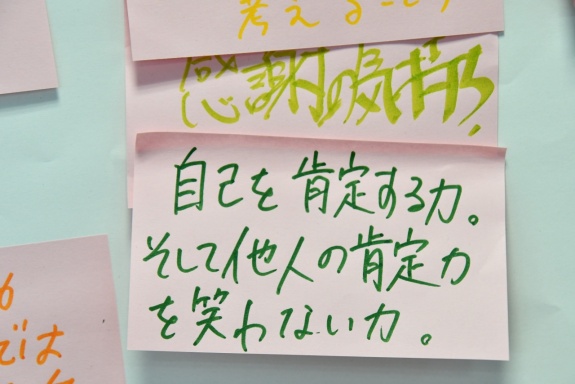 考えること
感謝の気持ち!
自己を肯定する力。
そして他人の肯定力
を笑わない力。
では